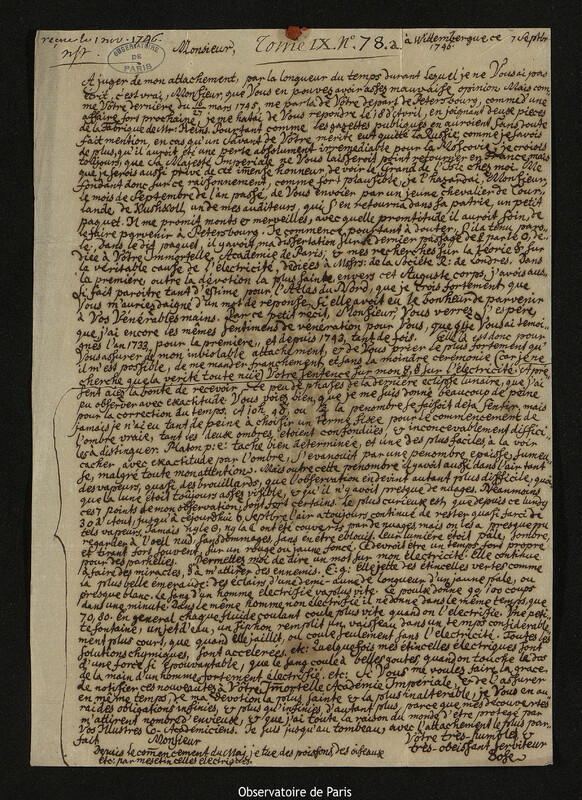 reçue le 1 nov. 1746.
OBSERVATOIRE DE PARIS
Monsieur,
Tome IX. N.º 78. a
à Wittembergue, ce 7 Septbr
1746.
A juger de mon attachement, par la longueur du temps durant lequel je ne Vous ai pas
écrit, c'est vrai, Monsieur, que Vous en pouvés avoir assés mauvaise opinion. Mais com-
me Votre dernière du mars 1745, me parla de Votre départ de Petersbourg, comme d'une
affaire fort prochaine, je me hatai de Vous repondre le 18 d'Avril, en joignant deux pieces
de la fabrique de Mr. Heins. Pourtant comme les gazettes publiques en auroient sans doute
fait mention, en cas qu'un savant de Votre mérite eut quitté la Russie, comme j'avois
de plus, qu'il auroit été une perte absolument irremediable pour la Moscovie, je croiois
toujours, que Sa Majesté Imperiale ne Vous laisseroit point retourner en France, mais
que je serois aussi privé de cet immense honneur de voir le Grand de l'Isle chés moi. Me
fondant donc sur ce raisonnement, comme fort plausible, je hazardai, Monsieur
le mois de Septembre de l'an passé, de Vous envoier par un jeune chevalier de Cour-
lande, de un de mes auditeurs, qui s'en retourna dans sa patrie, un petit
paquet. Il me promit monts & merveilles, avec quelle promtitude il auroit soin, de
le faire parvenir à Petersbourg. Je commence pourtant à douter, s'il a tenu paro-
le; dans le dit paquet, il y avoit ma dissertation sur le dernier passage de ☿ par le ☉, dé-
diée à Votre Immortelle, Académie de Paris, & mes recherches sur la Teorie & sur
la veritable cause de l'electricité, dediées à Mssrs. de la Societé R. de Londres. Dans
la première, outre la devotion la plus sainte envers cet Auguste corps, j'avois aus-
si fait paroitre tant d'estime pour l'Atlas du Nord, que je crois fortement que
Vous m'auriés daigné d'un mot de réponse, si elle avoit eu le bonheur de parvenir
à Vos Vénérables mains. Par ce petit récit, Monsieur, Vous verrés, j'espère
que j'ai encore les mêmes sentimens de veneration pour Vous, que je Vous ai temoi-
gnés l'an 1733, pour la première, et depuis 1743, tant de fois. C'est donc pour
Vous assurer de mon inviolable attachement, & de Vous prier le plus fortement qu'
il m'est possible, de me mander franchement, et sans la moindre ceremonie (car je ne
cherche que la verité toute nue) Votre sentence sur mon ☿, & sur l'électricité. A pre-
sent aiés la bonté de recevoir ce peu de phases de la derniere eclipse lunaire, que j'ai
pu observer avec exactitude. Vous voiés bien, que je me suis donné beaucoup de peine
pour la correction du temps. A 10h 48, ou la penombre se faisoit déja sentir, mais
jamais je n'ai eu tant de peine à choisir un terme fixe pour le commencement de
l'ombre vraie, tant les deux ombres étoient confondües, & inconcevablement diffici-
les à distinguer. Platon p. e. tache bien determinée, et une des plus faciles, à la voir
cacher avec exactitude par l'ombre, s'evanouit par une penombre epaisse, fumeu-
se, malgré toute mon attention. Mais outre cette penombre il y avoit aussi dans l'air tant
des vapeurs, quasi des brouillards, que l'observation en devint autant plus difficile, quoi-
que la lune étoit toujours assés visible, & qu'il n'y avoit presque de nuages. Néanmoins
ces points de mon observation, sont fort certains. Le plus curieux est, que depuis ce lundy
30 d'Aout, jusqu'à ce jourd'hui 6 Septbre, l'air a toujours continué de rester quasi farci de
tels vapeurs. Jamais ni le ☉, ny la ☾ ont été couverts par de nuages mais on les a presque pu
regarder à l'oeil nud, sans dommages, sans en être ebloui. Leur lumière étoit pale, sombre,
et tirant fort souvent, sur un rouge ou jaune foncé. Ce devroit être un temps fort propre
pour des parhelies. Permettés moi de dire un mot sur mon électricité. Elle continue
à faire des miracles, & à m'attirer des ennemis. E. g. elle jette des étincelles vertes comme
la plus belle emeraude: des eclairs d'une demi-aune de longueur d'un jaune pale, ou
presque blanc. Le sang d'un homme electrifié va plus vite. Le pouls donne 90, 100 coups
dans une minute. Dans le même homme non electrifié il ne donne dans le même temps, que
70, 80. En general chaque fluide coulant coule plus vite quand on l'électrifie. Une peti-
te fontaine, un jet d'eau, un siphon remplit un vaisseau dans un temps considerable-
ment plus court, que quand elle jaillit, ou coule seulement sans l'électricité. Toutes les
solutions chymiques, sont accelerées. etc. Quelquefois mes étincelles électriques sont
d'une force si epouvantable, que le sang coule à belles goutes, quand on touche le dos
de la main d'un homme fortement electrifié, etc. Si Vous me voulés faire la grace,
de notifier ces nouveautés à Votre Immortelle Académie Imperiale, & de l'assurer
en même temps de ma devotion la plus sainte & la plus inalterable, je Vous en au-
rai des obligations infinies, & plus qu'infinies d'autant plus, parce que mes découvertes
m'attirent nombre d'envieux, & que j'ai toute la raison du monde d'être protegé par
Vos Illustres Co-Académiciens. Je suis jusqu'au tombeau, avec l'attachement le plus par-
fait
Monsieur
Votre très-humble &
très-obeissant serviteur
Bose.
Depuis le commencement du Mai, je tue des poissons, des oiseaux
etc. par mes étincelles électriques.
Observatoire de Paris